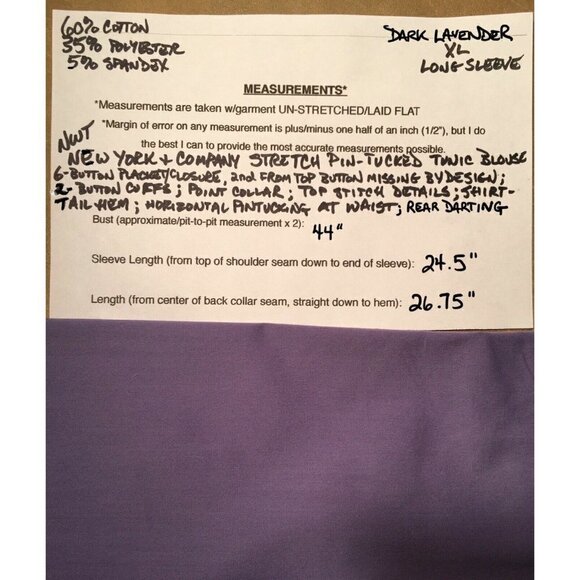 60% COTTON
35% POLYESTER
5% SPANDEX
DARK LAVENDER
XL
LONG SLEEVE
MEASUREMENTS*
*Measurements are taken w/garment UN-STRETCHED/LAID FLAT
*Margin of error on any measurement is plus/minus one half of an inch (1/2"), but I do
the best I can to provide the most accurate measurements possible.
NWT
NEW YORK + COMPANY STRETCH PIN-TUCKED TUNIC BLOUSE
6-BUTTON PLACKET/CLOSURE, 2nd FROM TOP BUTTON MISSING BY DESIGN;
2-BUTTON CUFFS; POINT COLLAR; TOP STITCH DETAILS; SHIRT-
TAIL HEM; HORIZONTAL PINTUCKING AT WAIST; REAR DARTING
Bust (approximate/pit-to-pit measurement x 2): 44"
Sleeve Length (from top of shoulder seam down to end of sleeve): 24.5"
Length (from center of back collar seam, straight down to hem): 26.75"